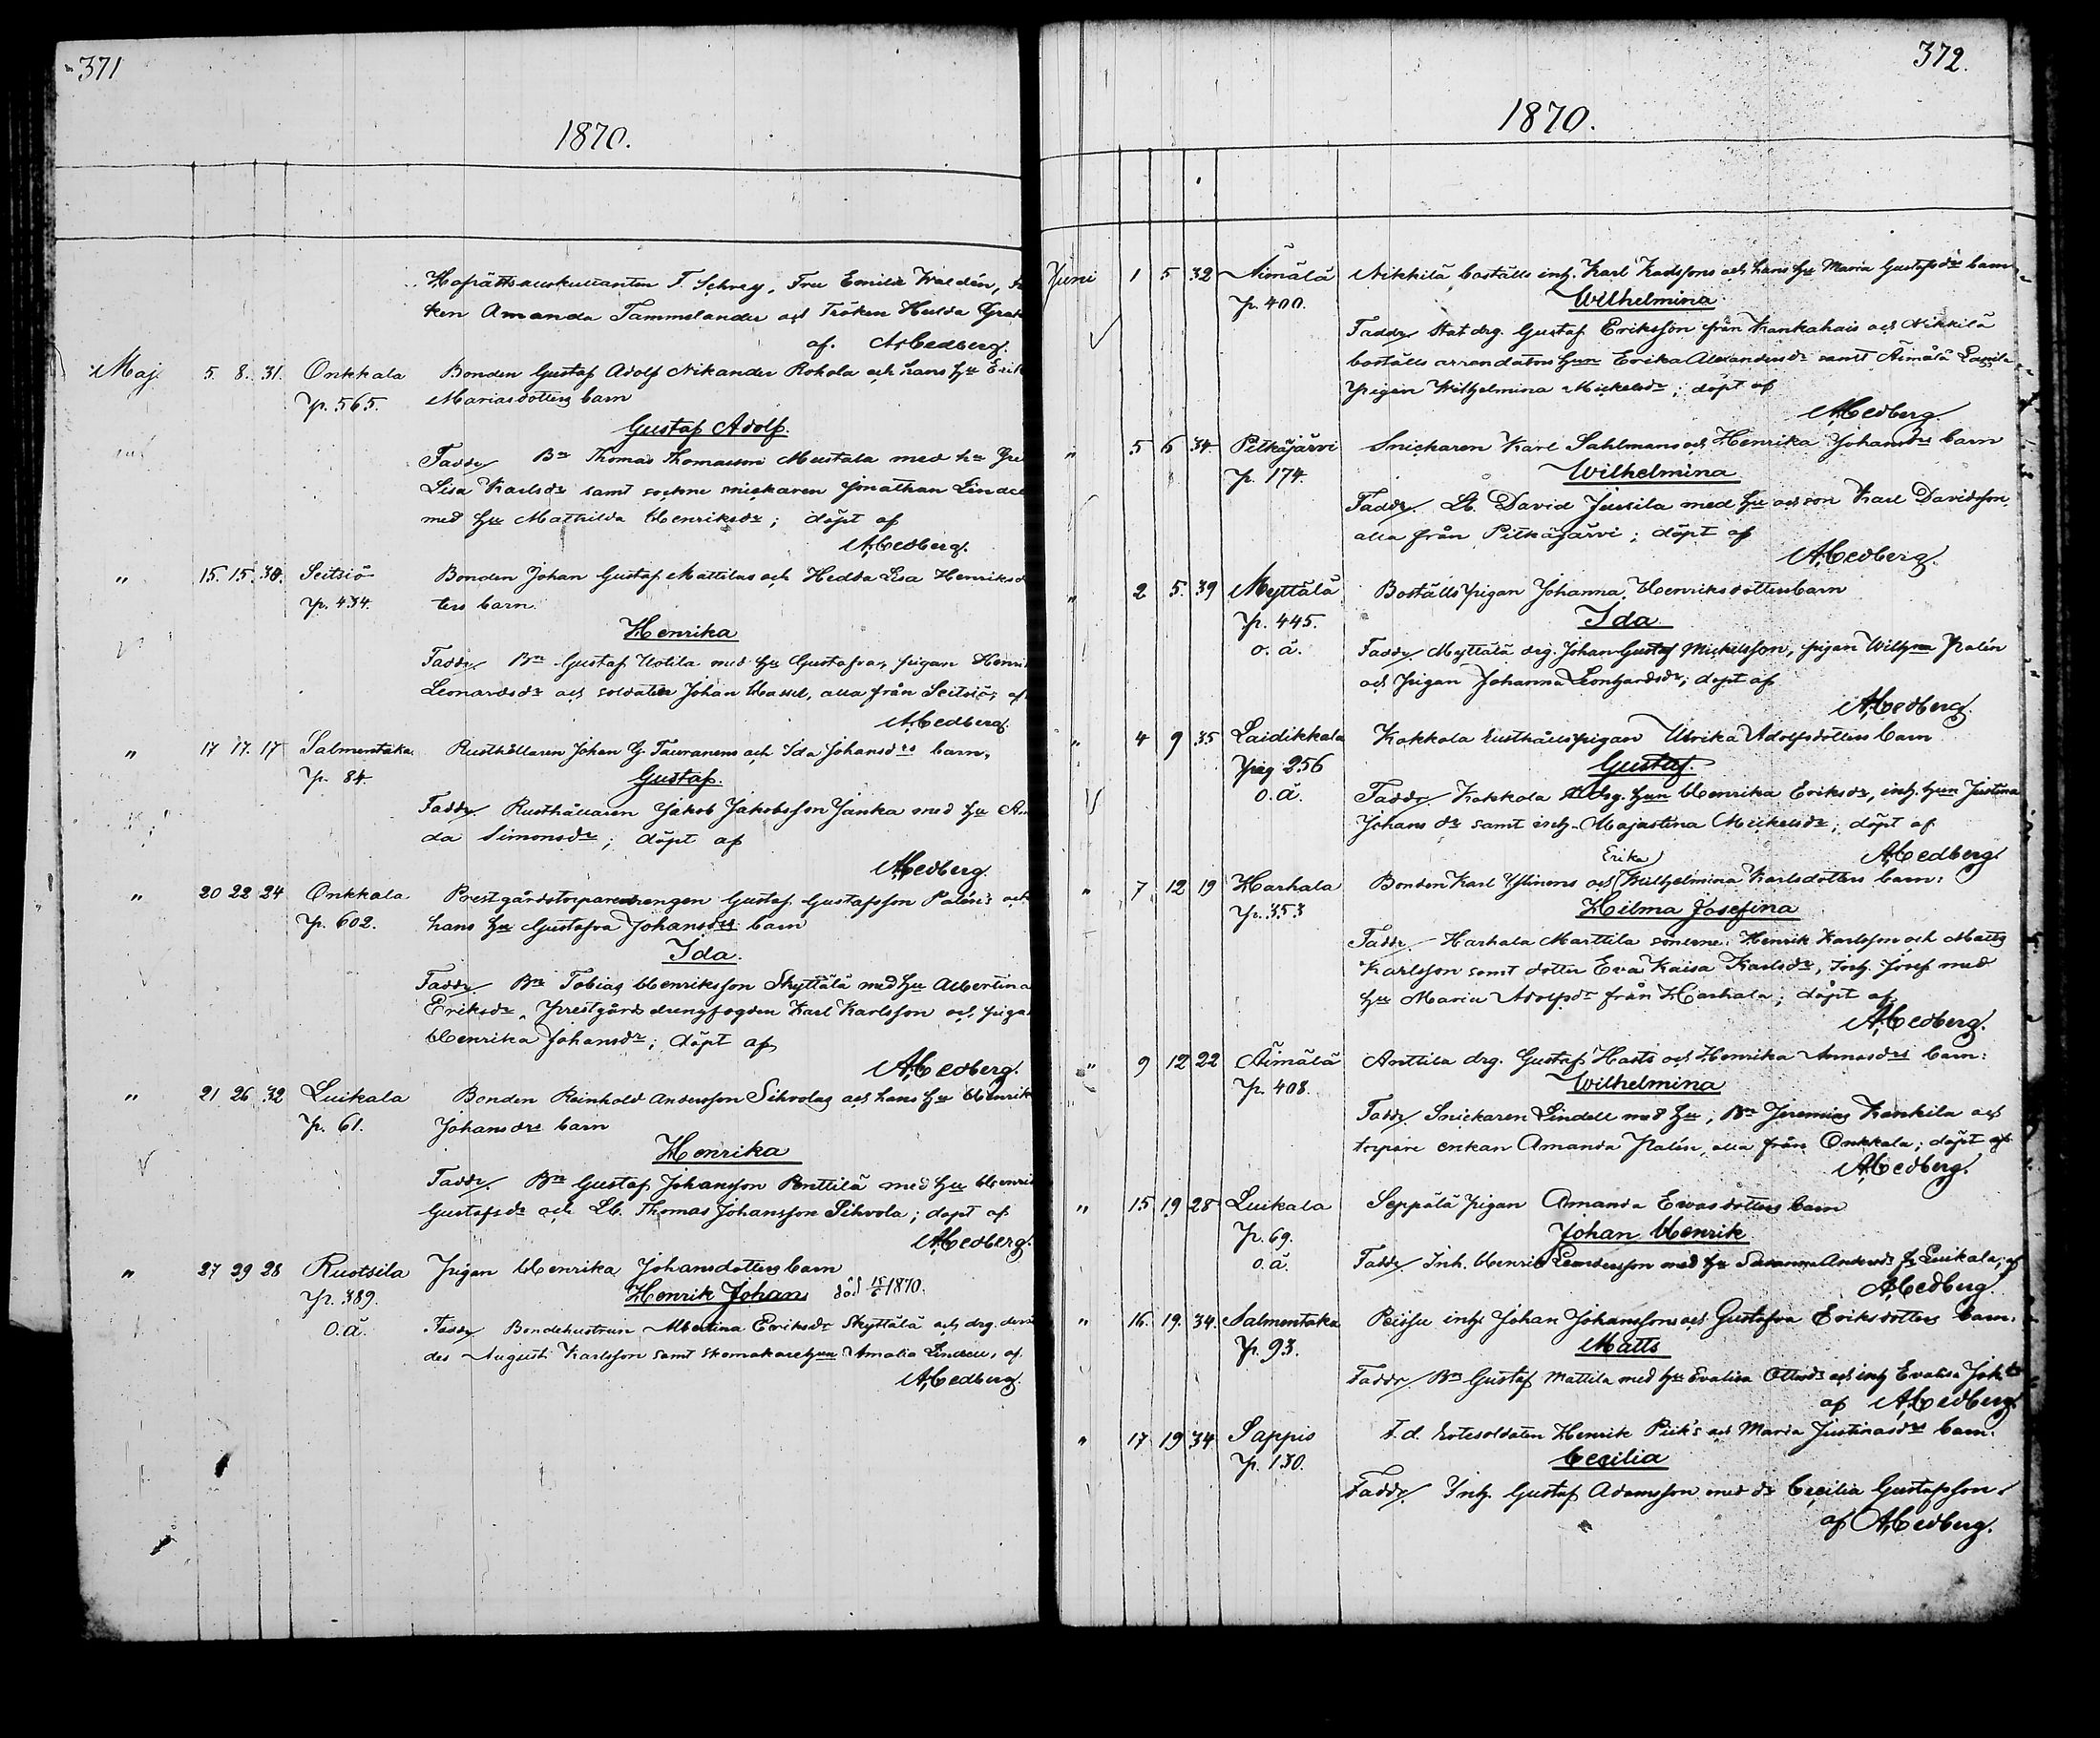 371
1870.
Hofrättsauskultanten T. Schrey, Fru Emilie Waldén, Frö
ken Amanda Tammelander och Fröken Hulda
af. A. Cedberg.
Maj. 5. 8. 31. Onkkala Bonden Gustaf Adolf Nikander Rokola och hans hu Erik
p. 565. Mariasdotters barn
Gustaf Adolf.
Faddr Bn Thomas Thomasson Mustala med hu
Lisa Karlsdr samt sockne snickaren Jonathan Lindel
med hu Mathilda Henriksdr; döpt af
A. Cedberg.
" 15. 15. 30. Seitsiö Bonden Johan Gustaf Mattilas och Hedda Lisa Henriksdo
p. 434. ters barn
Henrika
Faddr Bn Gustaf Uotila med hu Gustafva, pigan Henri
Leonardsdr och soldaten Johan Hassel, alla från Seitsiö; af
A. Cedberg.
" 17 17. 17 Salmentaka Rusthållaren Johan G. Tauranens och Ida Johansdrs barn.
p. 84. Gustaf.
Faddr Rusthållaren Jakob Jakobsson Janka med hu
da Simonsdr; döpt af
A. Cedberg.
" 20 22 24 Onkkala Prestgårdstorparedrengen Gustaf Gustafsson Palén's och
p. 602. hans hu Gustafva Johansdrs barn
Ida.
Faddr Bn Tobias Henriksson Skyttälä med hu Albertina
Eriksdr, Prestgårds drengfogden Karl Karlsson och pigan
Henrika Johansdr; döpt af
A. Cedberg.
" 21 26 32 Luikala Bonden Reinhold Andersson Sihvolas och hans hu Henrik
p. 61. Johansdrs barn
Henrika
Faddr. Bn Gustaf Johansson Penttilä med hu Henri
Gustafsdr och Lb. Thomas Johansson Sihvola; döpt af
A. Cedberg.
" 27 29 28 Ruotsila Pigan Henrika Johansdotters barn
p. 389. Henrik Johan död 15/6 1870.
o.ä. Faddr Bondehustrun Albertina Eriksdr Skyttälä och drg.
des August Karlsson samt skomakarehun Amalia Lindell, af
A. Cedberg.
372.
1870.
Juni 1 5 32 Äimälä Nikkilä boställs inh. Karl Karlssons och hans hu Maria Gustafsdrs barn
p. 400. Wilhelmina
Faddr Stat drg. Gustaf Eriksson från Kankahais och Nikkilä
boställs arrendators hun Erika Alexandersdr samt Äimälä
Pigan Wilhelmina Mickelsdr; döpt af
A. Cedberg.
" 5 6 34. Pitkäjärvi Snickaren Karl Sahlmans och Henrika Johansdrs barn
p. 174. Wilhelmina
Faddr. Lb. David Jussila med hu och son Karl Davidsson,
alla från Pitkäjärvi; döpt af
A. Cedberg.
" 2 5. 39 Myttälä Boställs pigan Johanna Henriksdotters barn
p. 445. Ida
o. ä. Faddr Myttälä drg. Johan Gustaf Mickelsson, pigan Wilhna Palén
och pigan Johanna Leonhardsdr; döpt af
A. Cedberg.
" 4 9 35 Laidikkala Kokkola Rusthålls pigan Ulrika Adolfsdotters barn
pag 256 Gustaf.
o. ä. Faddr Kokkola drg. hun Henrika Eriksdr, inh. hun Justina
Johansdr samt inh. Majastina Mickelsdr; döpt af
A. Cedberg.
Erika
" 7 12 19 Harhala Bonden Karl Yllinens och Wilhelmina Karlsdotters barn:
p. 353 Hilma Josefina
Faddr. Harhala Marttila sönerne: Henrik Karlsson och Matts
Karlsson samt dotter Eva Kaisa Karlsdr, Inh. Josef med
hu Maria Adolfsdr från Harhala; döpt af
A. Cedberg.
" 9 12 22 Äimälä Anttila drg. Gustaf Hasts och Henrika Annasdrs barn:
p. 408. Wilhelmina
Faddr Snickaren Lindell med hu; Bn Jeremias Kankila och
torpare enkan Amanda Palén, alla från Onkkala; döpt af
A. Cedberg.
" 15 19 28 Luikala Seppälä pigan Amanda Ewasdotters barn
p. 69. Johan Henrik
o. ä. Faddr Inh. Henrik Leandersson med hu Susanna Andersdr fr Luikala; af
A. Cedberg.
" 16. 19. 34. Salmentaka Peijsu inh. Johan Johanssons och Gustafva Eriksdotters barn.
p. 93. Matts
Faddr Bn Gustaf Mattila med hu Evalisa Ottosdr och inh Evalisa
af A. Cedberg.
" 17 19 34 Sappis F. d. Rotesoldaten Henrik Piik's och Maria Justinasdrs barn.
p. 130. Cecilia
Faddr Inh. Gustaf Adamsson med dr Cecilia Gustafsson.
af A. Cedberg.